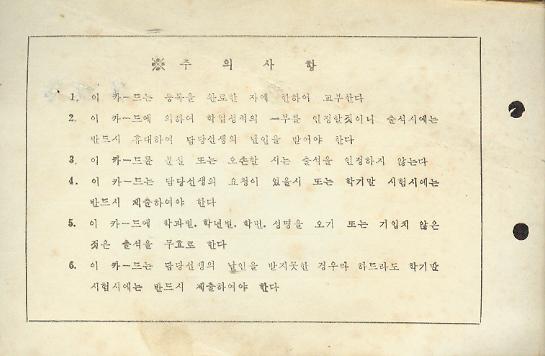 ※ 주 의 사 항
1. 이 카ー드는 등록을 완료한 자에 한하여 교부한다
2. 이 카ー드에 의하여 학업성적의 一부를 인정할것이니 출석시에는
반드시 휴대하여 담당선생의 날인을 받어야 한다
3. 이 카ー드를 분실 또는 오손한 시는 출석을 인정하지 않는다
4. 이 카ー드는 담당선생의 요청이 있을시 또는 학기말 시험시에는
반드시 제출하여야 한다
5. 이 카ー드에 학과별, 학년별, 학번, 성명을 오기 또는 기입치 않은
것은 출석을 무효로 한다
6. 이 카ー드는 담당선생의 날인을 받지못한 경우라 하드라도 학기말
시험시에는 반드시 제출하여야 한다